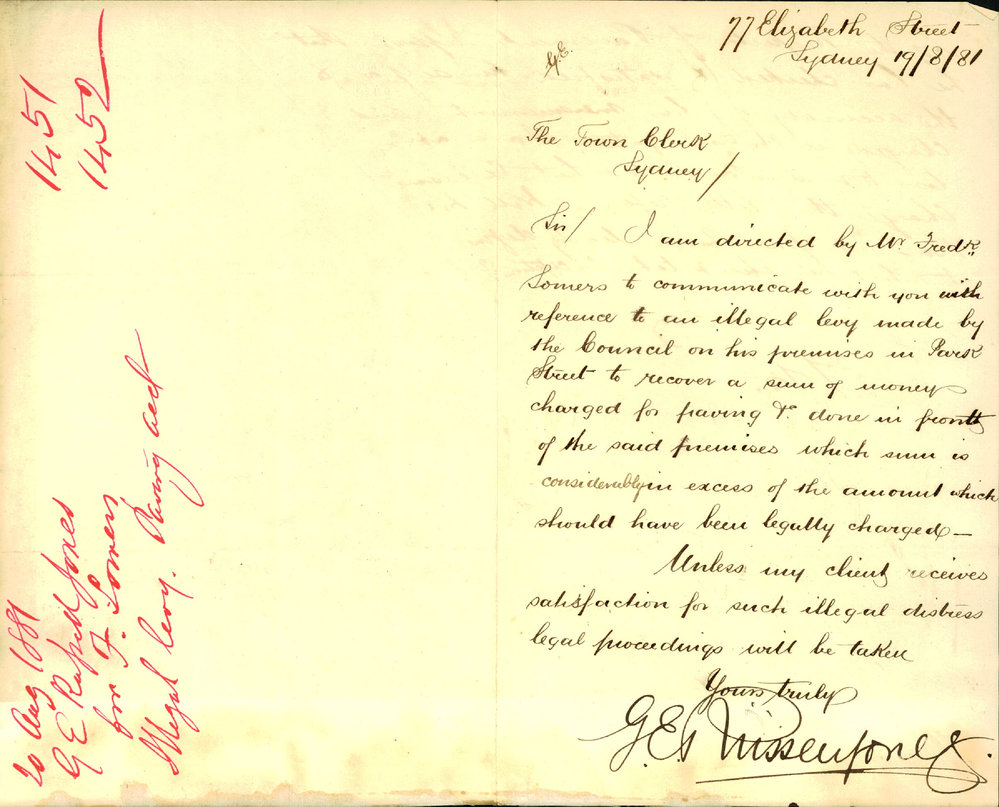 77 Elizabeth Street
Sydney 19/8/81
G.E.
The Town Clerk
Sydney/
Sir/ I am directed by Mr Fredk
Somers to communicate with you with
reference to an illegal levy made by
the Council on his premises in Park
Street to recover a sum of money
charged for paving &c. done in front
of the said premises which sum is
considerably in excess of the amount which
should have been legally charged —
Unless my client receives
satisfaction for such illegal distress
legal proceedings will be taken
Yours truly
G.E. Jones
1451
1452
20 Aug 1881
G E Russell Jones
for F. Somers
Illegal levy. Paving acct